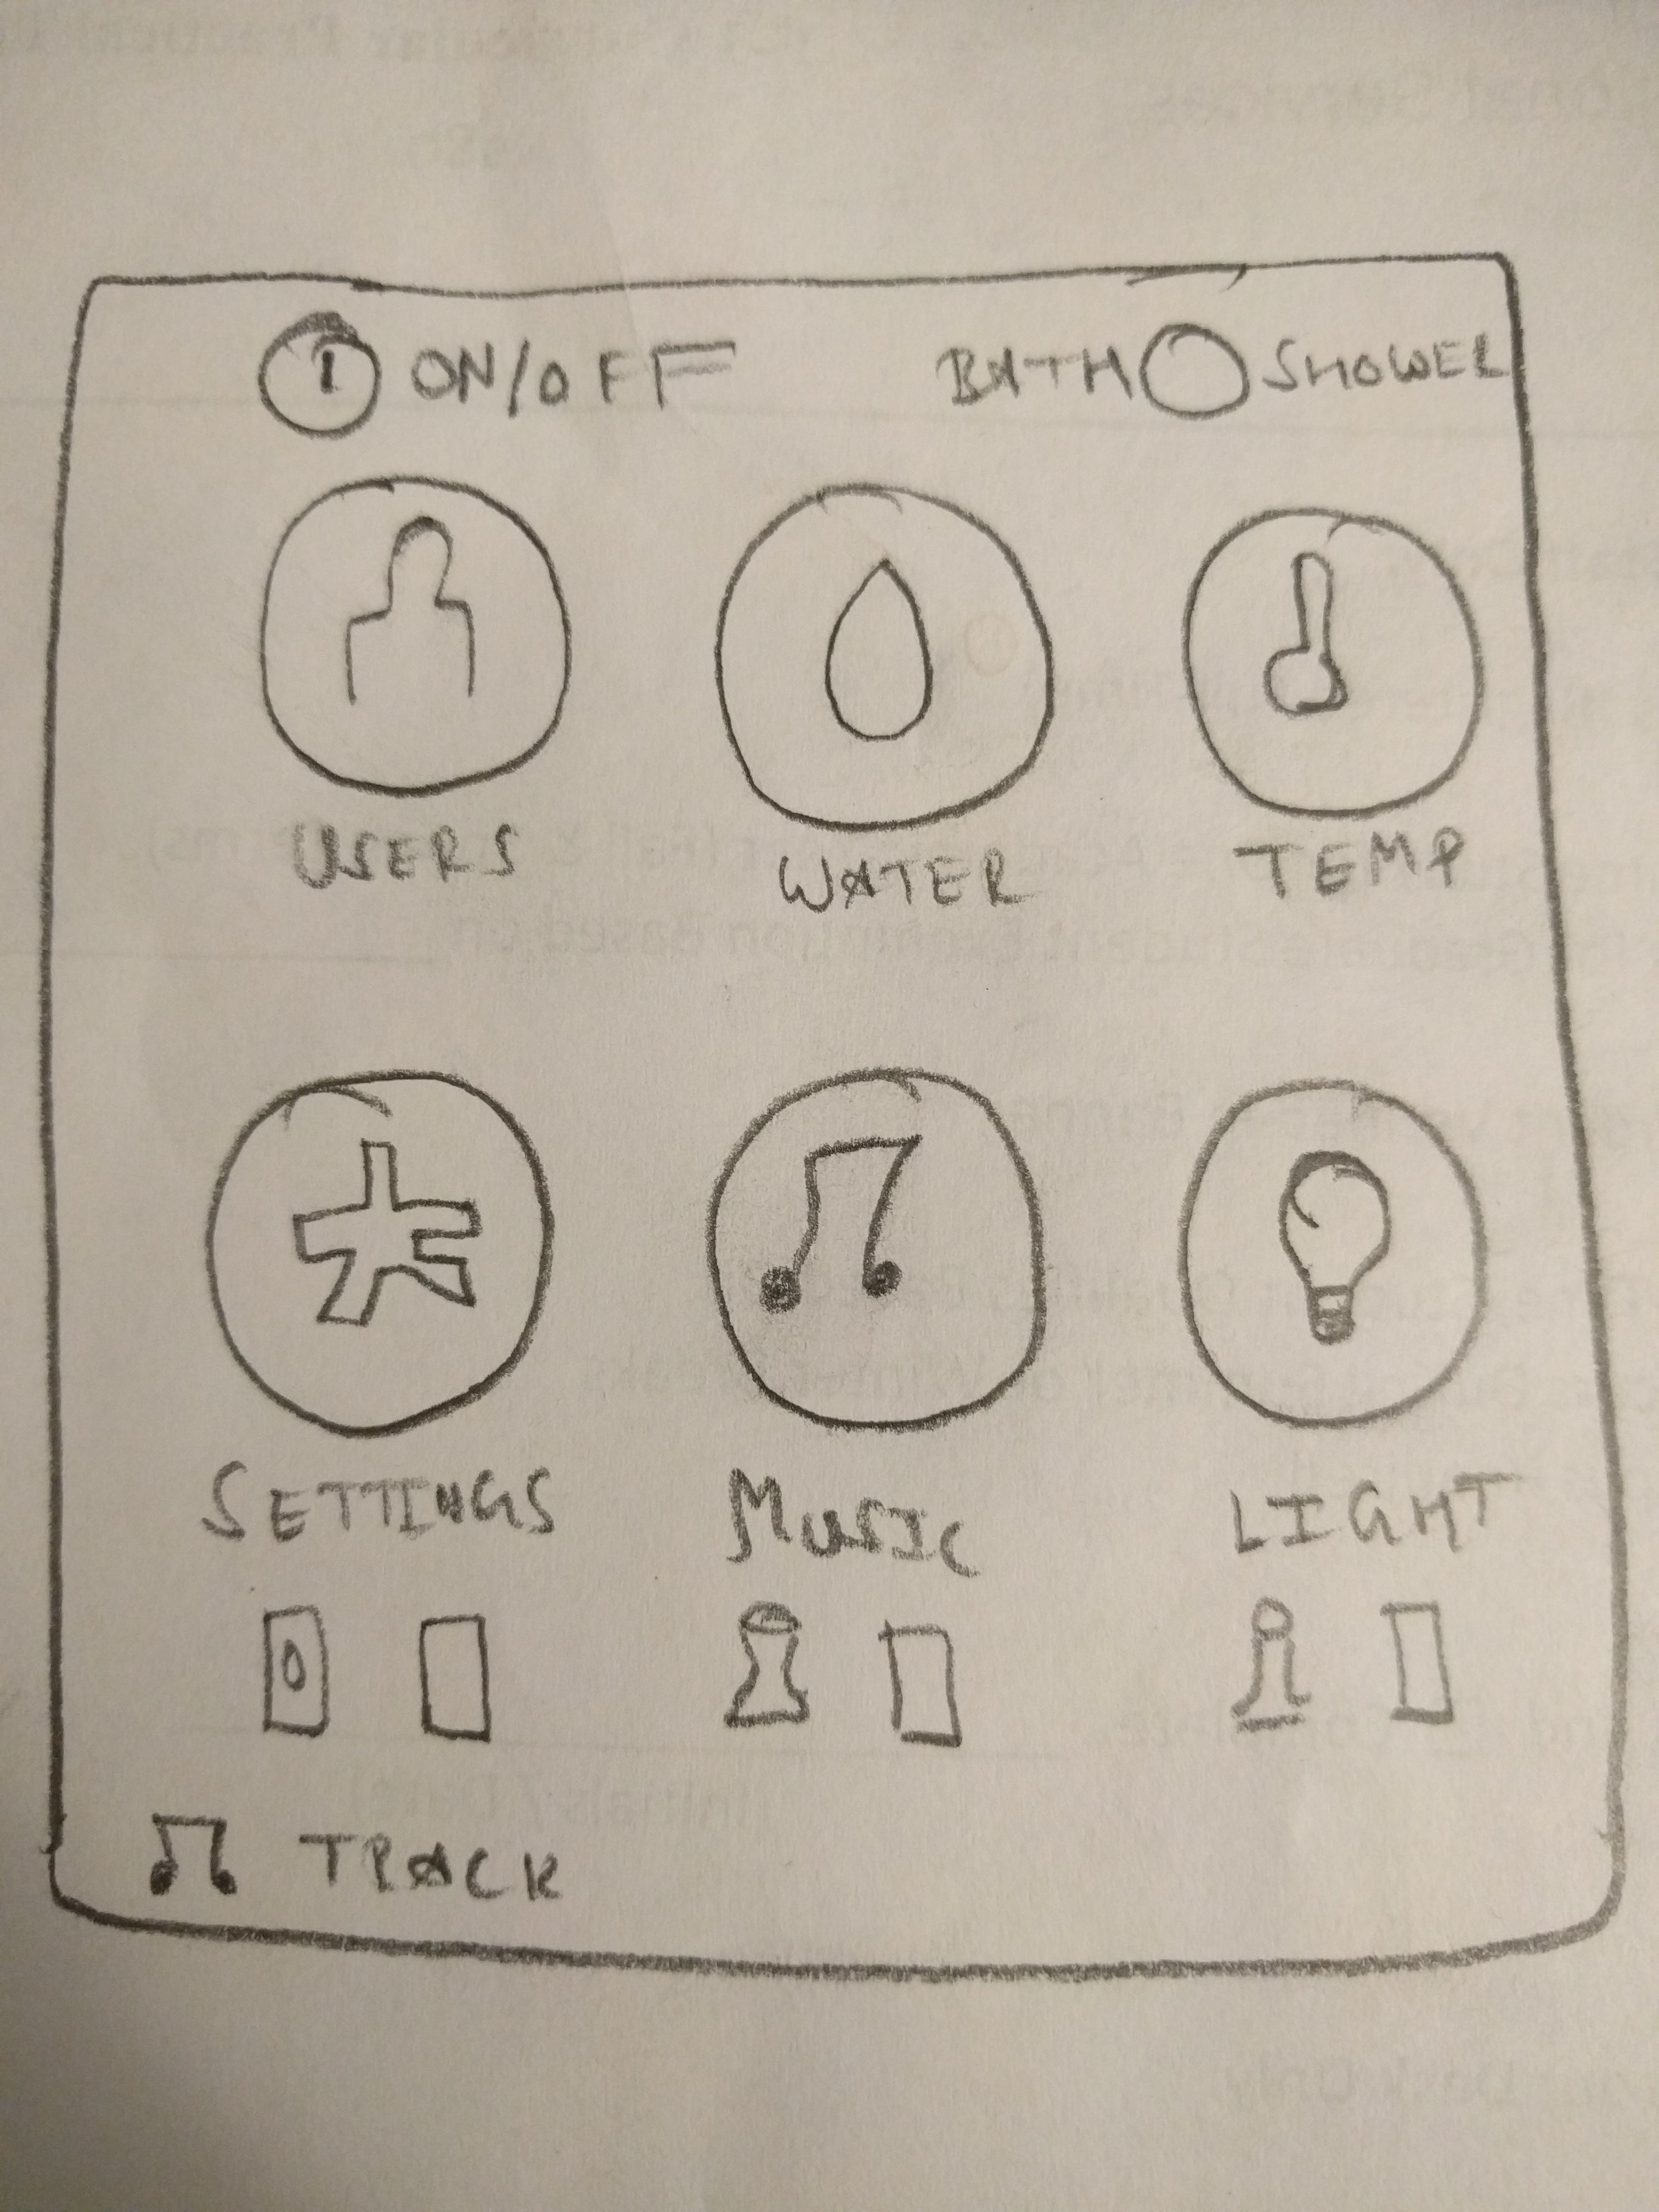 ON/OFF BATH SHOWER
USERS WATER TEMP
SETTINGS MUSIC LIGHT
TRACK